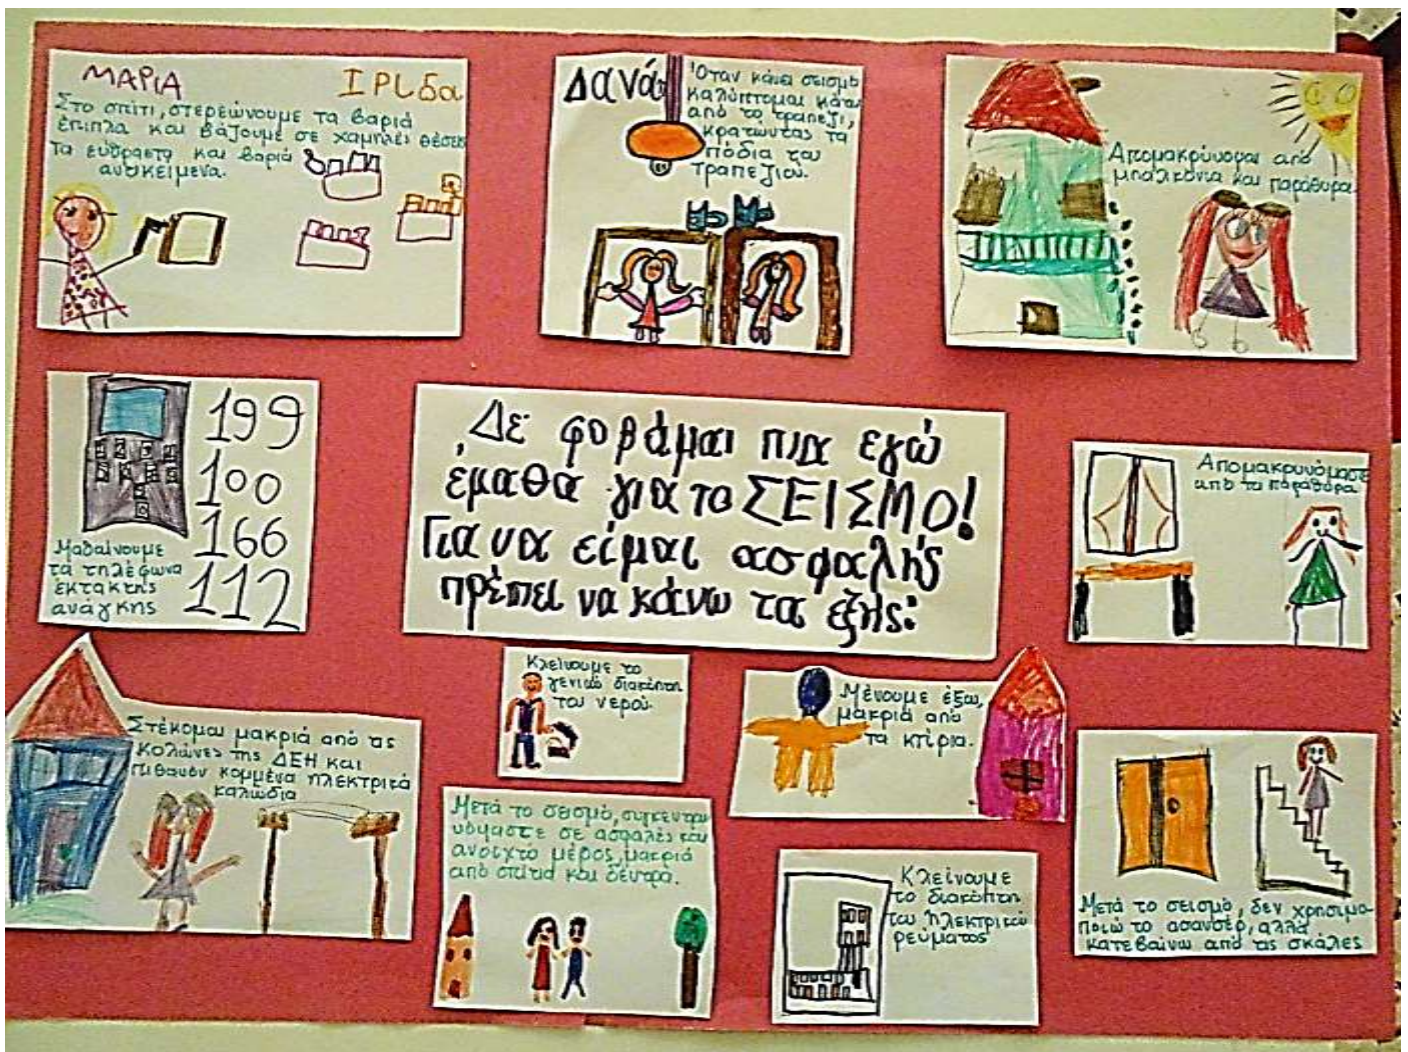 ΜΑΡΙΑ ΙΡΙδα
Στο σπίτι, στερεώνουμε τα βαριά
έπιπλα και βάζουμε σε χαμηλές θέσεις
τα εύθραστα και βαριά
αντικείμενα.
Δανάη
Όταν κάνει σεισμό
καλύπτομαι κάτω
από το τραπέζι,
κρατώντας τα
πόδια του
τραπεζιού.
Απομακρύνομαι από
μπαλκόνια και παράθυρα.
199
100
166
112
Μαθαίνουμε
τα τηλέφωνα
έκτακτης
ανάγκης
Δε φοβάμαι πια εγώ
έμαθα για το ΣΕΙΣΜΟ!
Για να είμαι ασφαλής
πρέπει να κάνω τα εξής:
Απομακρυνόμαστε
από τα παράθυρα
Στέκομαι μακριά από τις
κολώνες της ΔΕΗ και
πιθανόν κομμένα ηλεκτρικά
καλώδια
Κλείνουμε το
γενικό διακόπτη
του νερού.
Μένουμε έξω,
μακριά από
τα κτίρια.
Μετά το σεισμό, συγκεντρω
νόμαστε σε ασφαλές και
ανοιχτό μέρος, μακριά
από σπίτια και δέντρα.
Κλείνουμε
το διακόπτη
του ηλεκτρικού
ρεύματος
Μετά το σεισμό, δεν χρησιμο-
ποιώ το ασανσέρ, αλλά
κατεβαίνω από τις σκάλες